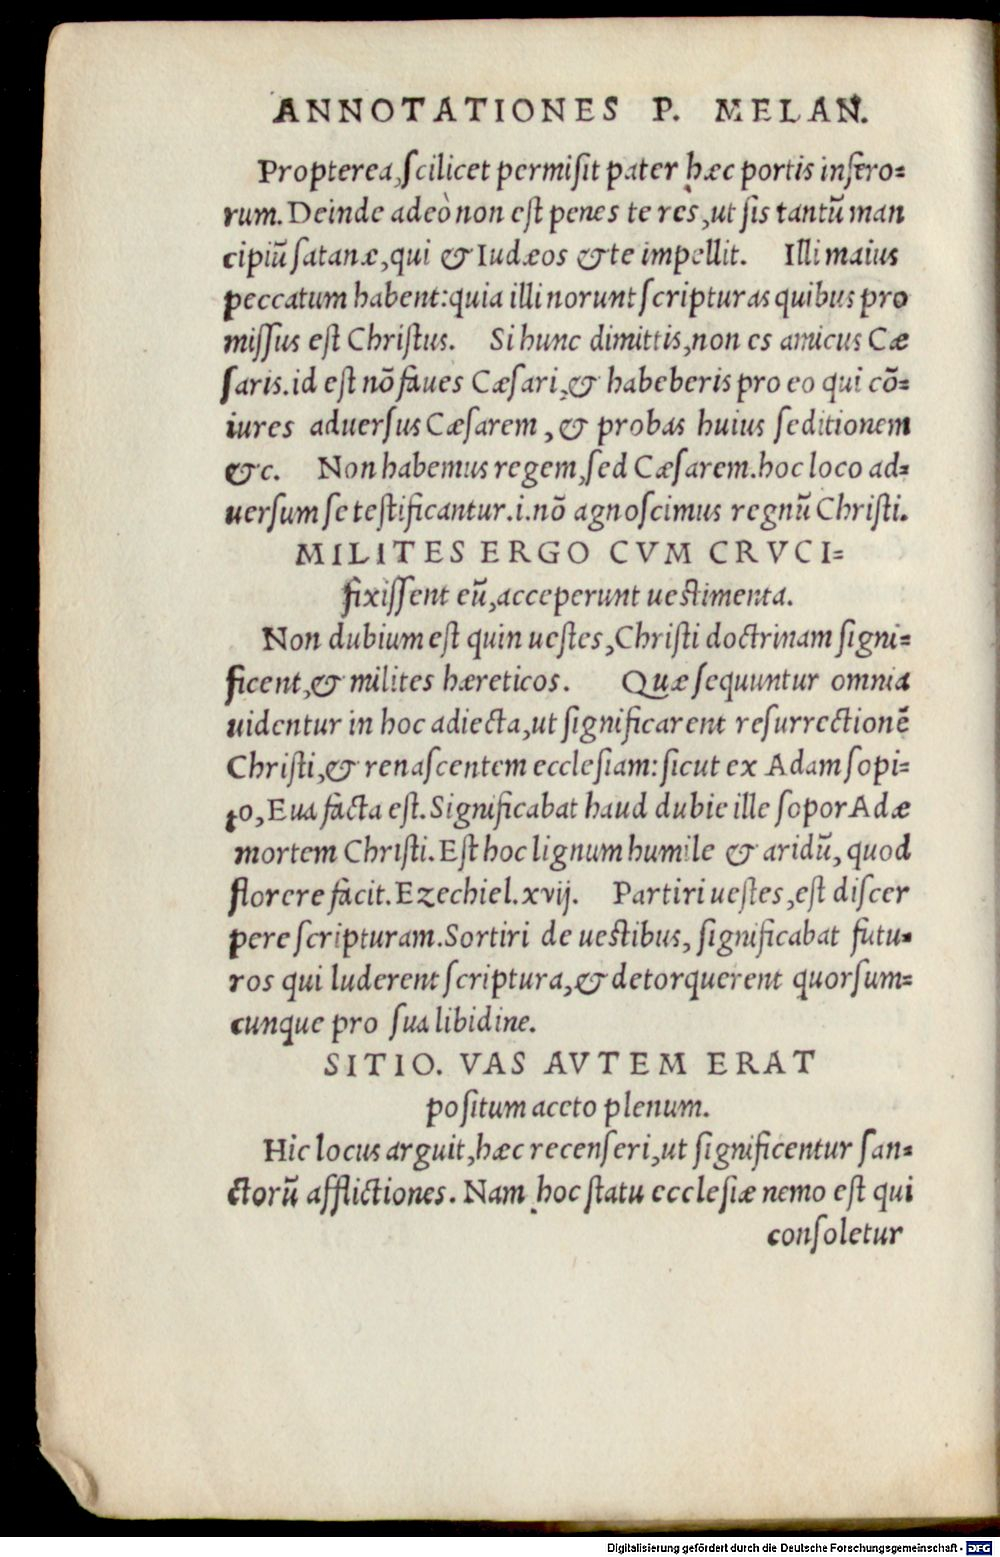 ANNOTATIONES P. MELAN.
Propterea, ſcilicet permiſit pater hæc portis infero=
rum. Deinde adeò non eſt penes te res, ut ſis tantũ man
cipiũ ſatanæ, qui & Iudæos & te impellit. Illi maius
peccatum habent: quia illi norunt ſcripturas quibus pro
miſſus eſt Chriſtus. Si hunc dimittis, non es amicus Cæ
ſaris. id eſt nõ faues Cæſari, & habeberis pro eo qui cõ=
iures aduerſus Cæſarem, & probas huius ſeditionem
&c. Non habemus regem, ſed Cæſarem. hoc loco ad=
uerſum ſe teſtificantur. i. nõ agnoſcimus regnũ Chriſti.
MILITES ERGO CVM CRVCI=
fixiſſent eũ, acceperunt ueſtimenta.
Non dubium eſt quin ueſtes, Chriſti doctrinam ſigni=
ficent, & milites hæreticos. Quæ ſequuntur omnia
uidentur in hoc adiecta, ut ſignificarent reſurrectionẽ
Chriſti, & renaſcentem eccleſiam: ſicut ex Adam ſopi=
to, Eua facta eſt. Significabat haud dubie ille ſopor Adæ
mortem Chriſti. Eſt hoc lignum humile & aridũ, quod
florere facit. Ezechiel. xvij. Partiri ueſtes, eſt diſcer
pere ſcripturam. Sortiri de ueſtibus, ſignificabat futu=
ros qui luderent ſcriptura, & detorquerent quorſum=
cunque pro ſua libidine.
SITIO. VAS AVTEM ERAT
poſitum aceto plenum.
Hic locus arguit, hæc recenſeri, ut ſignificentur ſan=
ctorũ afflictiones. Nam hoc ſtatu eccleſiæ nemo eſt qui
conſoletur
Digitalisierung gefördert durch die Deutsche Forschungsgemeinschaft - DFG